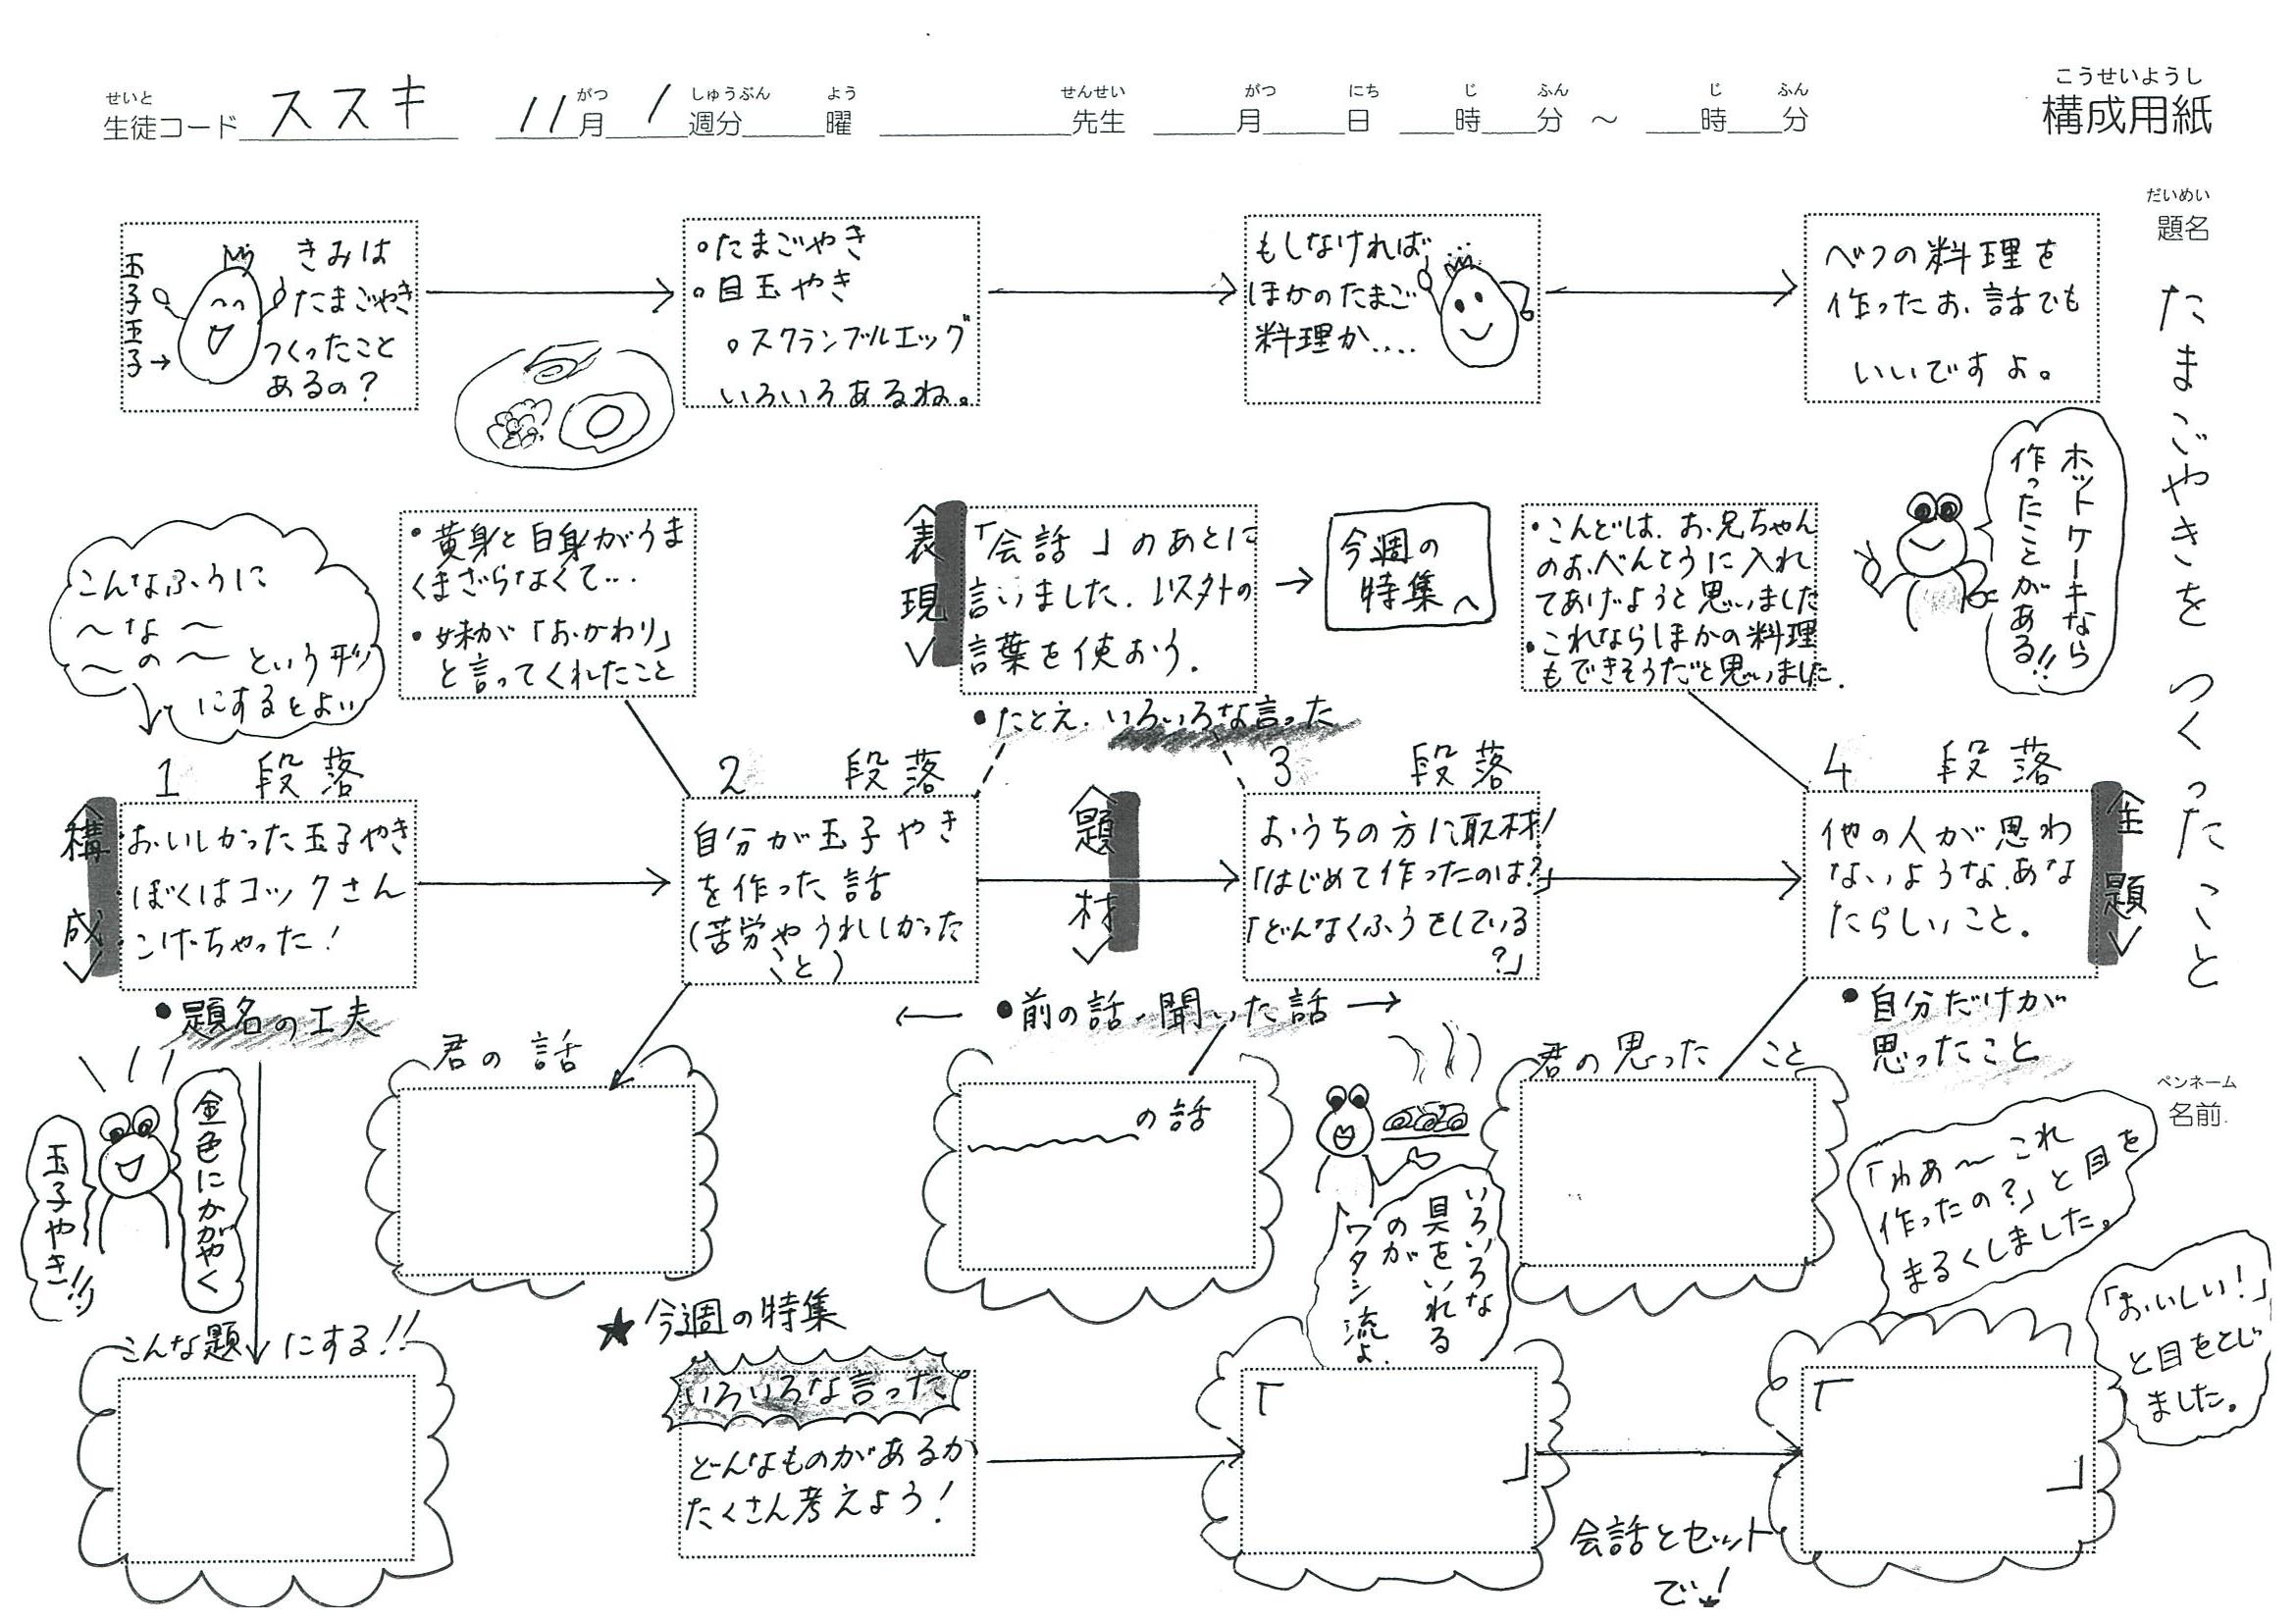 せいと
生徒コード ススキ 11 がつ 月 1 しゅうぶん 週分 よう 曜 せんせい 先生 がつ 月 にち 日 じ 時 ふん 分 ～ じ 時 ふん 分
こうせいようし
構成用紙
だいめい
題名
たまごやきを つくったこと
玉子王子→
きみは
たまごやき
つくったこと
あるの？
。たまごやき
。目玉やき
。スクランブルエッグ
いろいろあるね。
もしなければ
ほかのたまご
料理か....
べつの料理を
作ったお話でも
いいですよ。
ホットケーキなら
作ったことがある!!
こんなふうに
～な～
～の～という形
にするとよい
・黄身と白身がうま
くまざらなくて…
・妹が「おかわり」
と言ってくれたこと
〈表現〉
「会話」のあとに
言いました.以外の
言葉を使おう.
今週の
特集へ
・こんどは、お兄ちゃん
のおべんとうに入れ
てあげようと思いました
・これならほかの料理
もできそうだと思いました.
・たとえ.いろいろな言った
1 段落
〈構成〉
おいしかった玉子やき
ぼくはコックさん
こげちゃった!
・題名の工夫
2 段落
自分が玉子やき
を作った話
(苦労やうれしかった
こと)
〈題材〉
3 段落
おうちの方に取材!
「はじめて作ったのは?」
「どんなくふうをしている
?」
←・前の話・聞いた話→
4 段落
他の人が思わ
ないような、あな
たらしいこと.
〈主題〉
・自分だけが
思ったこと
ペンネーム
名前
金色にかがやく
玉子やき!!
君の話
の話
いろいろな
具をいれる
のが
ワタシ流よ.
君の思ったこと
「わぁ～これ
作ったの?」と目を
まるくしました。
「おいしい!」
と目をとじ
ました。
こんな題にする!!
★今週の特集
いろいろな言った
どんなものがあるか
たくさん考えよう!
「
」
会話とセット
で!
「
」